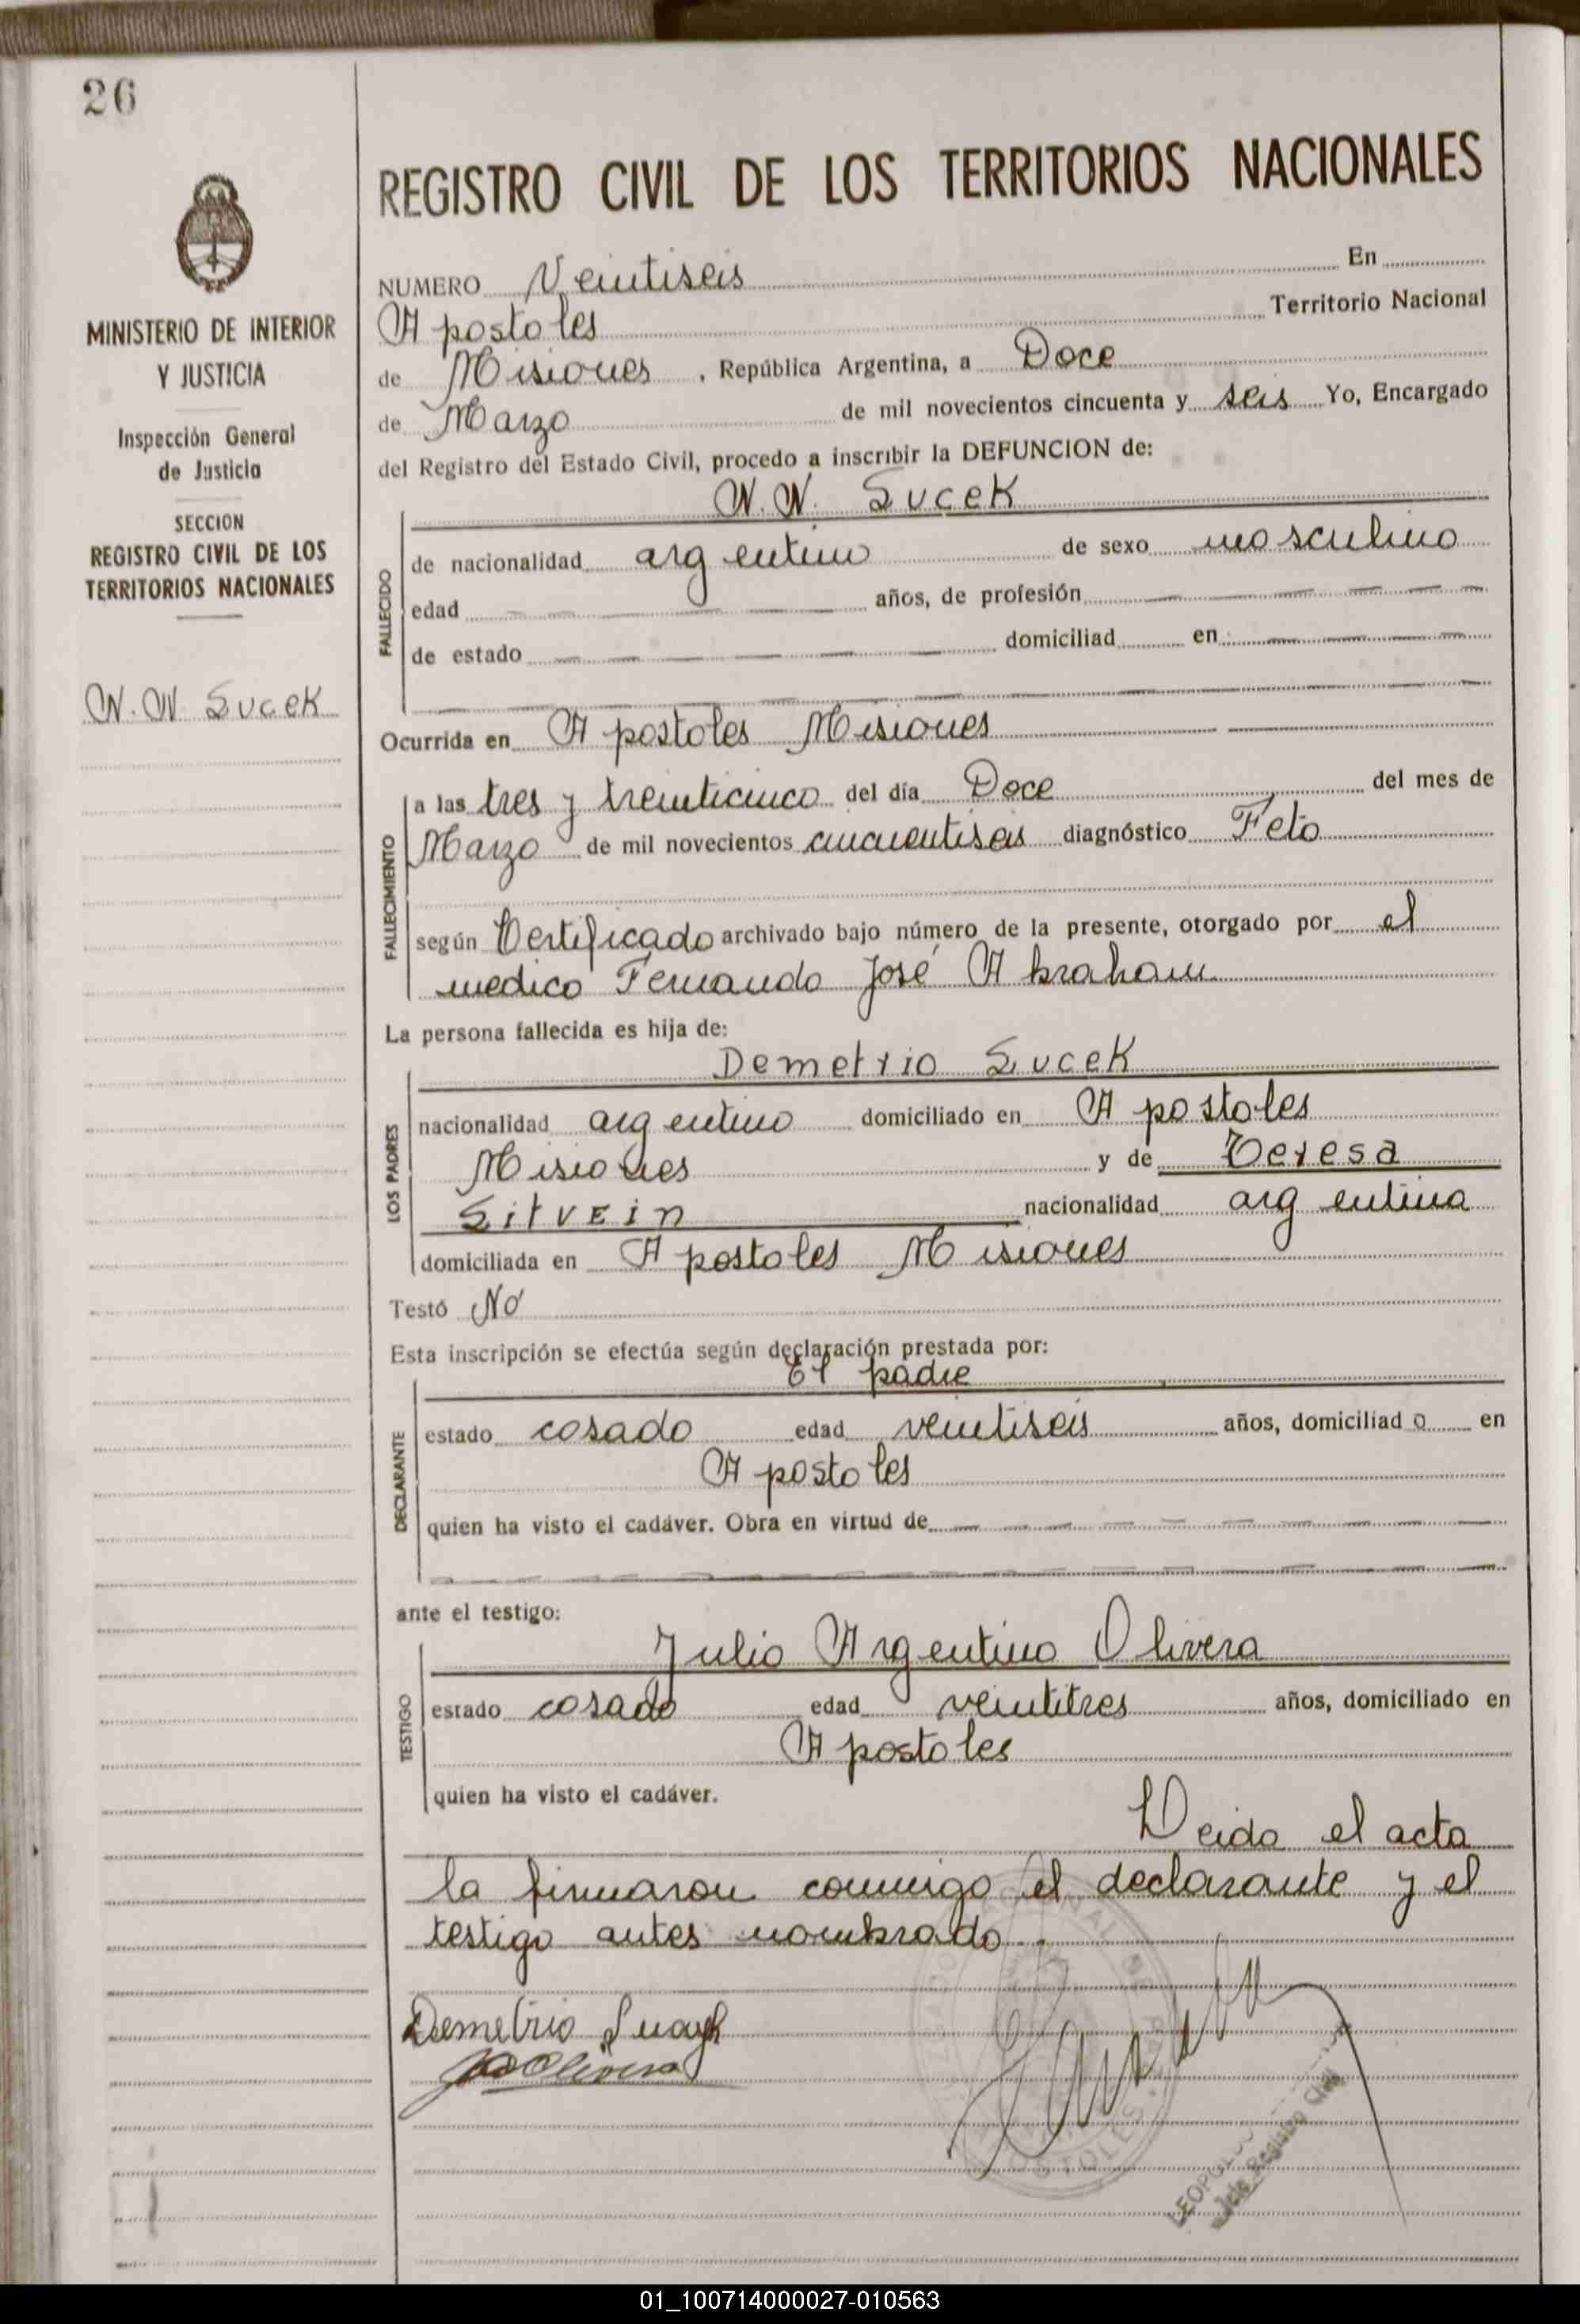 26
MINISTERIO DE INTERIOR
Y JUSTICIA
Inspección General
de Justicia
SECCION
REGISTRO CIVIL DE LOS
TERRITORIOS NACIONALES
N. N. Sucek
REGISTRO CIVIL DE LOS TERRITORIOS NACIONALES
NUMERO Veintiseis En
Apostoles Territorio Nacional
de Misiones, República Argentina, a Doce
de Marzo de mil novecientos cincuenta y seis Yo, Encargado
del Registro del Estado Civil, procedo a inscribir la DEFUNCION de:
N. N. Sucek
FALLECIDO
de nacionalidad argentino de sexo masculino
edad años, de profesión
de estado domiciliad en
Ocurrida en Apostoles Misiones
FALLECIMIENTO
a las tres y treinticinco del día Doce del mes de
Marzo de mil novecientos cincuentiseis diagnóstico Feto
según Certificado archivado bajo número de la presente, otorgado por el
medico Fernando José Abraham
La persona fallecida es hija de:
LOS PADRES
Demetrio Sucek
nacionalidad argentino domiciliado en Apostoles
Misiones y de Teresa
Sitvein nacionalidad argentina
domiciliada en Apostoles Misiones
Testó No
Esta inscripción se efectúa según declaración prestada por:
DECLARANTE
El padre
estado casado edad veintiseis años, domiciliado en
Apostoles
quien ha visto el cadáver. Obra en virtud de
ante el testigo:
TESTIGO
Julio Argentino Olivera
estado casado edad veintitres años, domiciliado en
Apostoles
quien ha visto el cadáver.
Leida el acta
la firmaron conmigo el declarante y el
testigo antes nombrado.
Demetrio
Olivera
Jefe Registro Civil
01_100714000027-010563